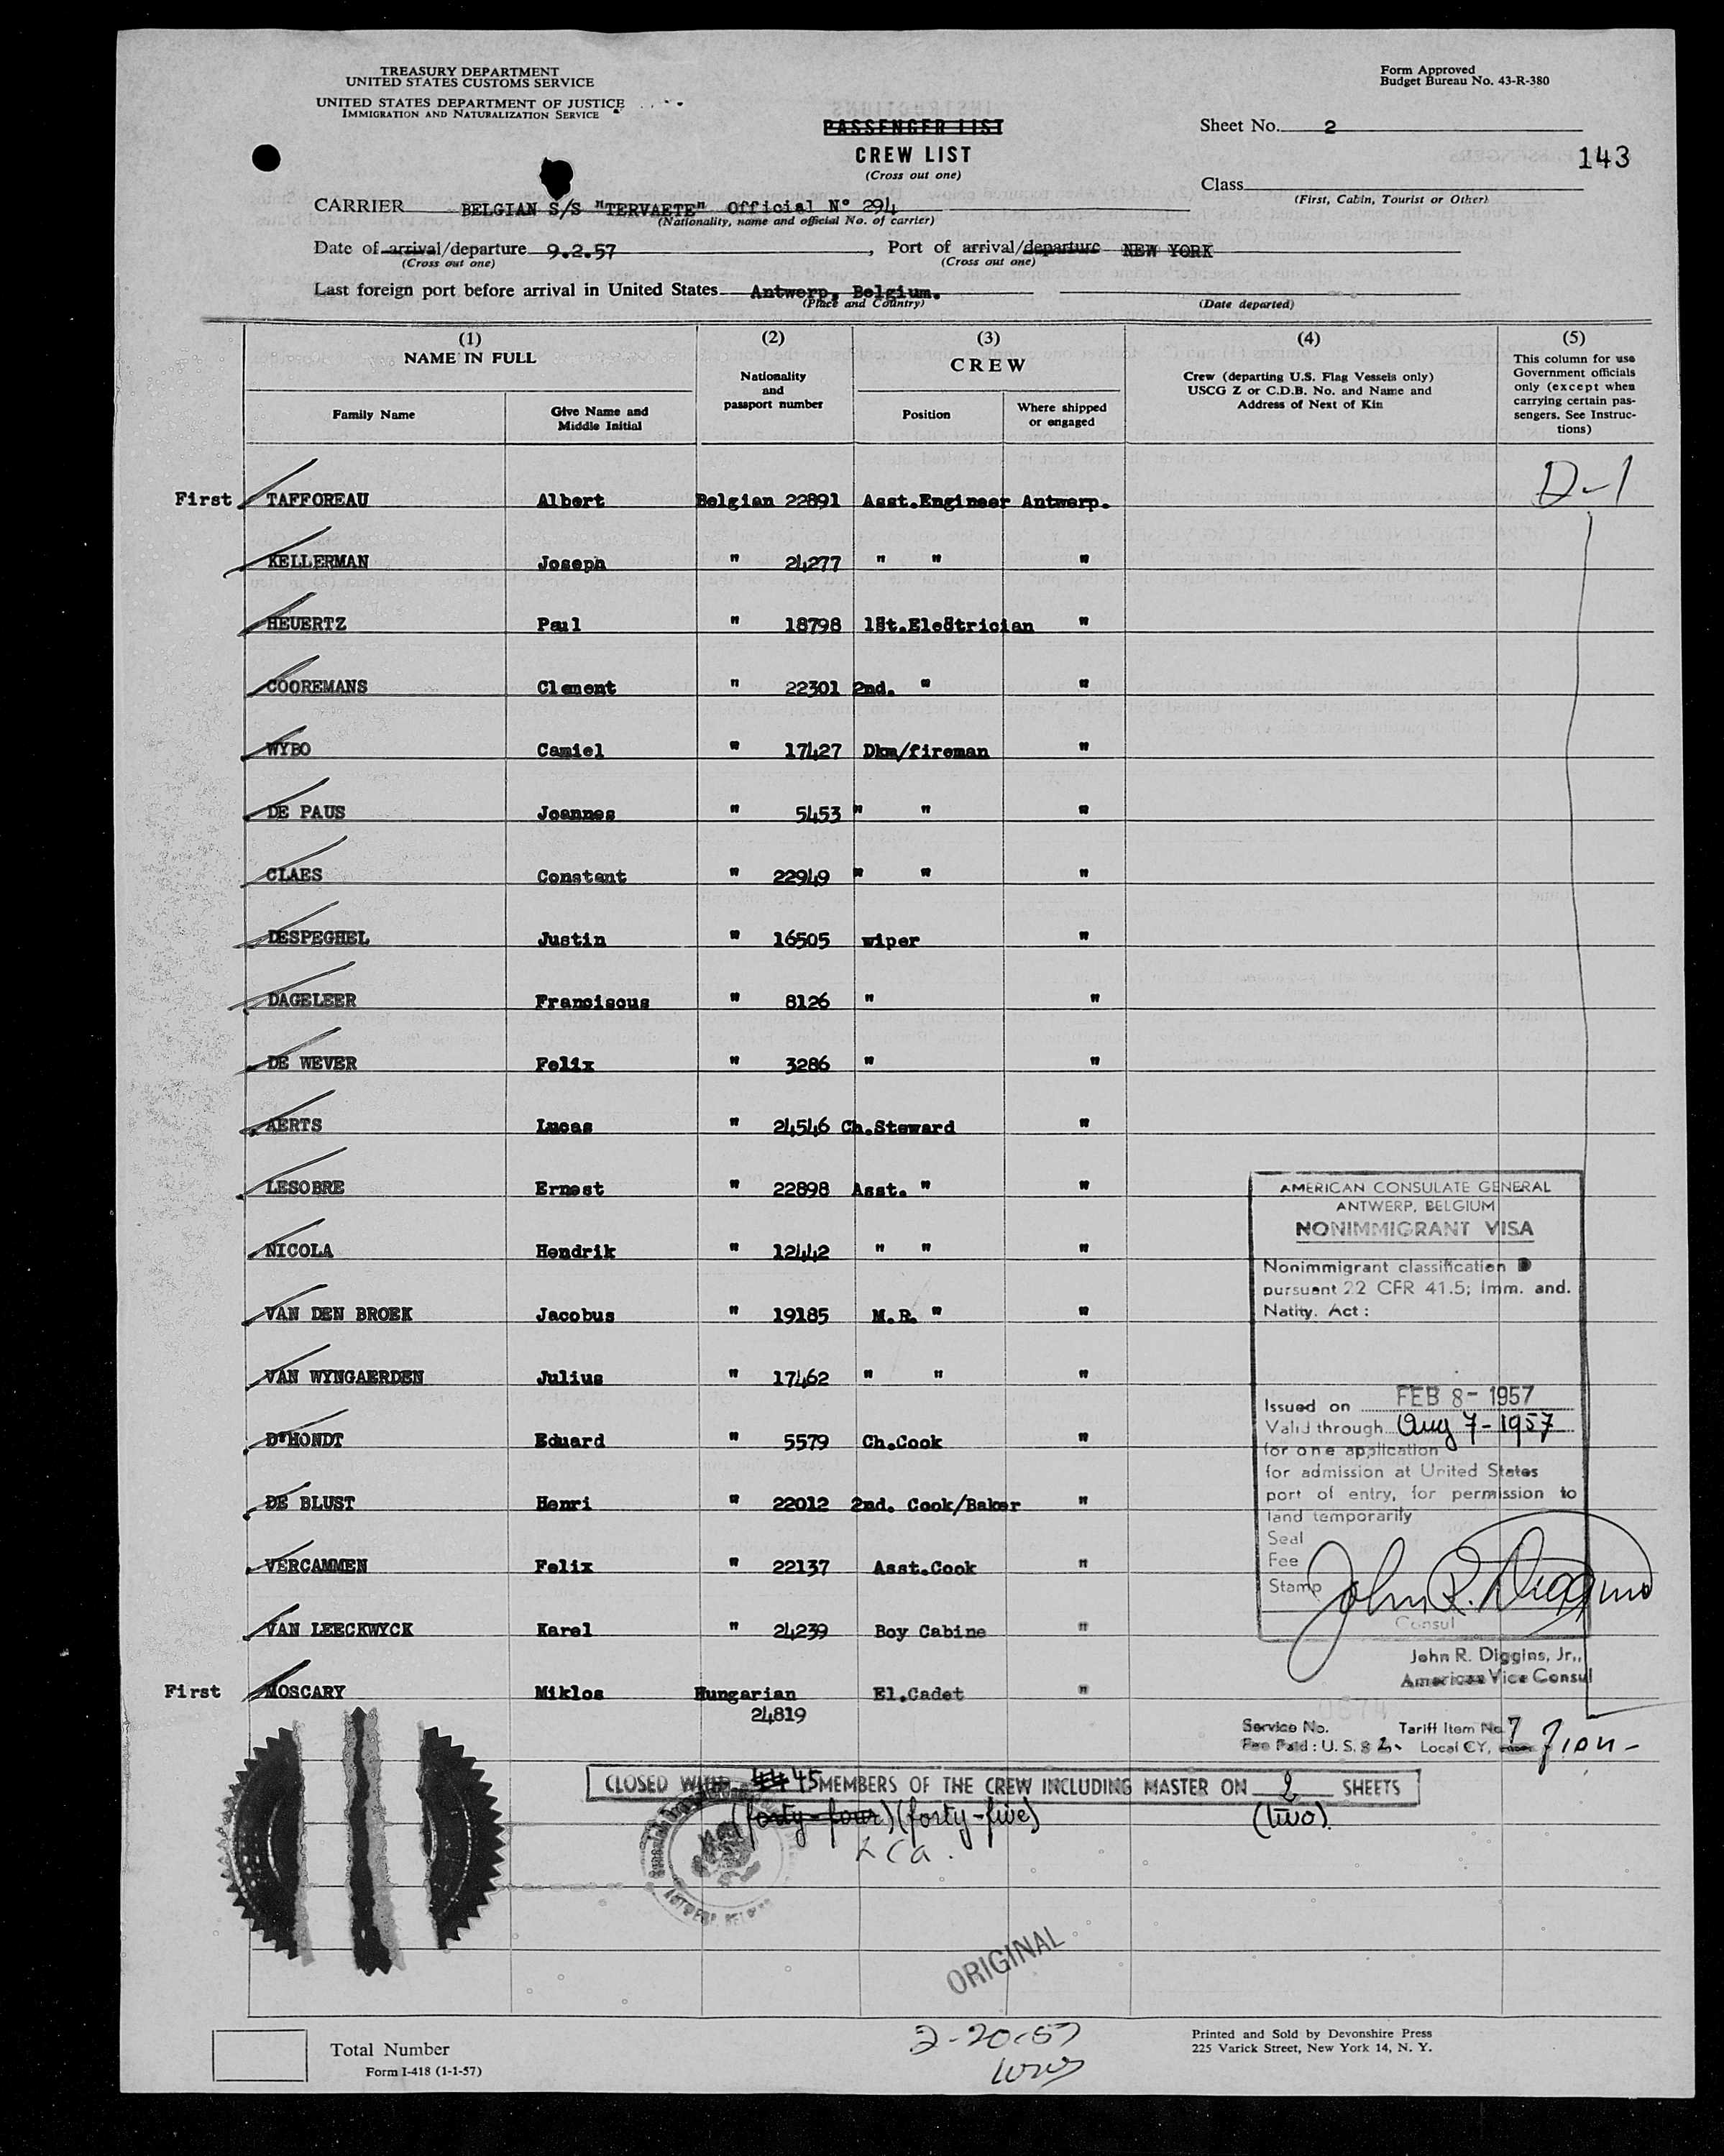 TREASURY DEPARTMENT
UNITED STATES CUSTOMS SERVICE
UNITED STATES DEPARTMENT OF JUSTICE
IMMIGRATION AND NATURALIZATION SERVICE
Form Approved
Budget Bureau No. 43-R-380
PASSENGER LIST
CREW LIST
(Cross out one)
Sheet No. 2
143
Class
(First, Cabin, Tourist or Other)
CARRIER BELGIAN S/S "TERVAETE" Official N° 294
(Nationality, name and official No. of carrier)
Date of arrival/departure 9.2.57, Port of arrival/departure NEW YORK
(Cross out one) (Cross out one)
Last foreign port before arrival in United States Antwerp, Belgium.
(Place and Country) (Date departed)
(1) (2) (3) (4) (5)
NAME IN FULL
Nationality and passport number
CREW
Crew (departing U.S. Flag Vessels only)
USCG Z or C.D.B. No. and Name and
Address of Next of Kin
This column for use
Government officials
only (except when
carrying certain pas-
sengers. See Instruc-
tions)
Family Name Give Name and Middle Initial Position Where shipped or engaged
First TAFFOREAU Albert Belgian 22891 Asst.Engineer Antwerp. D-1
KELLERMAN Joseph " 24277 " " "
HEUERTZ Paul " 18798 1St.Electrician "
COOREMANS Clement " 22301 2nd. " "
WYBO Camiel " 17427 Dkm/fireman "
DE PAUS Joannes " 5453 " " "
CLAES Constant " 22949 " " "
DESPEGHEL Justin " 16505 wiper "
DAGELEER Franciscus " 8126 " "
DE WEVER Felix " 3286 " "
AERTS Lucas " 24546 Ch.Steward "
LESOBRE Ernest " 22898 Asst. " "
NICOLA Hendrik " 12442 " " "
VAN DEN BROEK Jacobus " 19185 M.R. " "
VAN WYNGAERDEN Julius " 17462 " " "
D'HONDT Eduard " 5579 Ch.Cook "
DE BLUST Henri " 22012 2nd. Cook/Baker "
VERCAMMEN Felix " 22137 Asst.Cook "
VAN LEECKWYCK Karel " 24239 Boy Cabine "
First MOSCARY Miklos Hungarian 24819 El.Cadet "
AMERICAN CONSULATE GENERAL
ANTWERP, BELGIUM
NONIMMIGRANT VISA
Nonimmigrant classification D
pursuant 22 CFR 41.5; Imm. and.
Natity. Act:
Issued on FEB 8 - 1957
Valid through Aug 7-1957
for one application
for admission at United States
port of entry, for permission to
land temporarily
Seal
Fee
Stamp
John R. Diggins
Consul
John R. Diggins, Jr.,
American Vice Consul
Service No. Tariff Item No. 7
Fee Paid: U.S. $ 2. Local CY.
CLOSED WITH 44 45 MEMBERS OF THE CREW INCLUDING MASTER ON 2 SHEETS
(forty-four) (forty-five) (two)
ORIGINAL
2-20-57
Total Number
Form I-418 (1-1-57)
Printed and Sold by Devonshire Press
225 Varick Street, New York 14, N. Y.